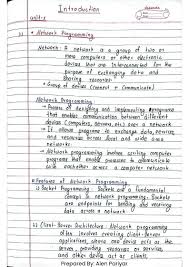 Introduction
unit-1
* Network Programming
Network: A network is a group of two or
more computers or other electronic
devices that are interconnected for the
purpose of exchanging data and
sharing resources.
Group of devices (connect & communicate)
Network Programming:
Process of designing and implementing programs
that enable communication between different
devices (computers, servers, etc.) over
It allows programs to exchange data,
and resources across local area
networks
Network programming involve
programs that enable processes to communicate
with each other across a computer
network.
# Features of Network Programming
i) Socket Programming: Sockets are a fundamental
concept in network programming. Sockets
are endpoints for sending and receiving
data across a network.
ii) Client-Server Architecture: Network programming
often involves creating client-server
applications, where one device acts as the
server, providing resources or services,
and other device acts as client
Prepared By: Alen Pariyar